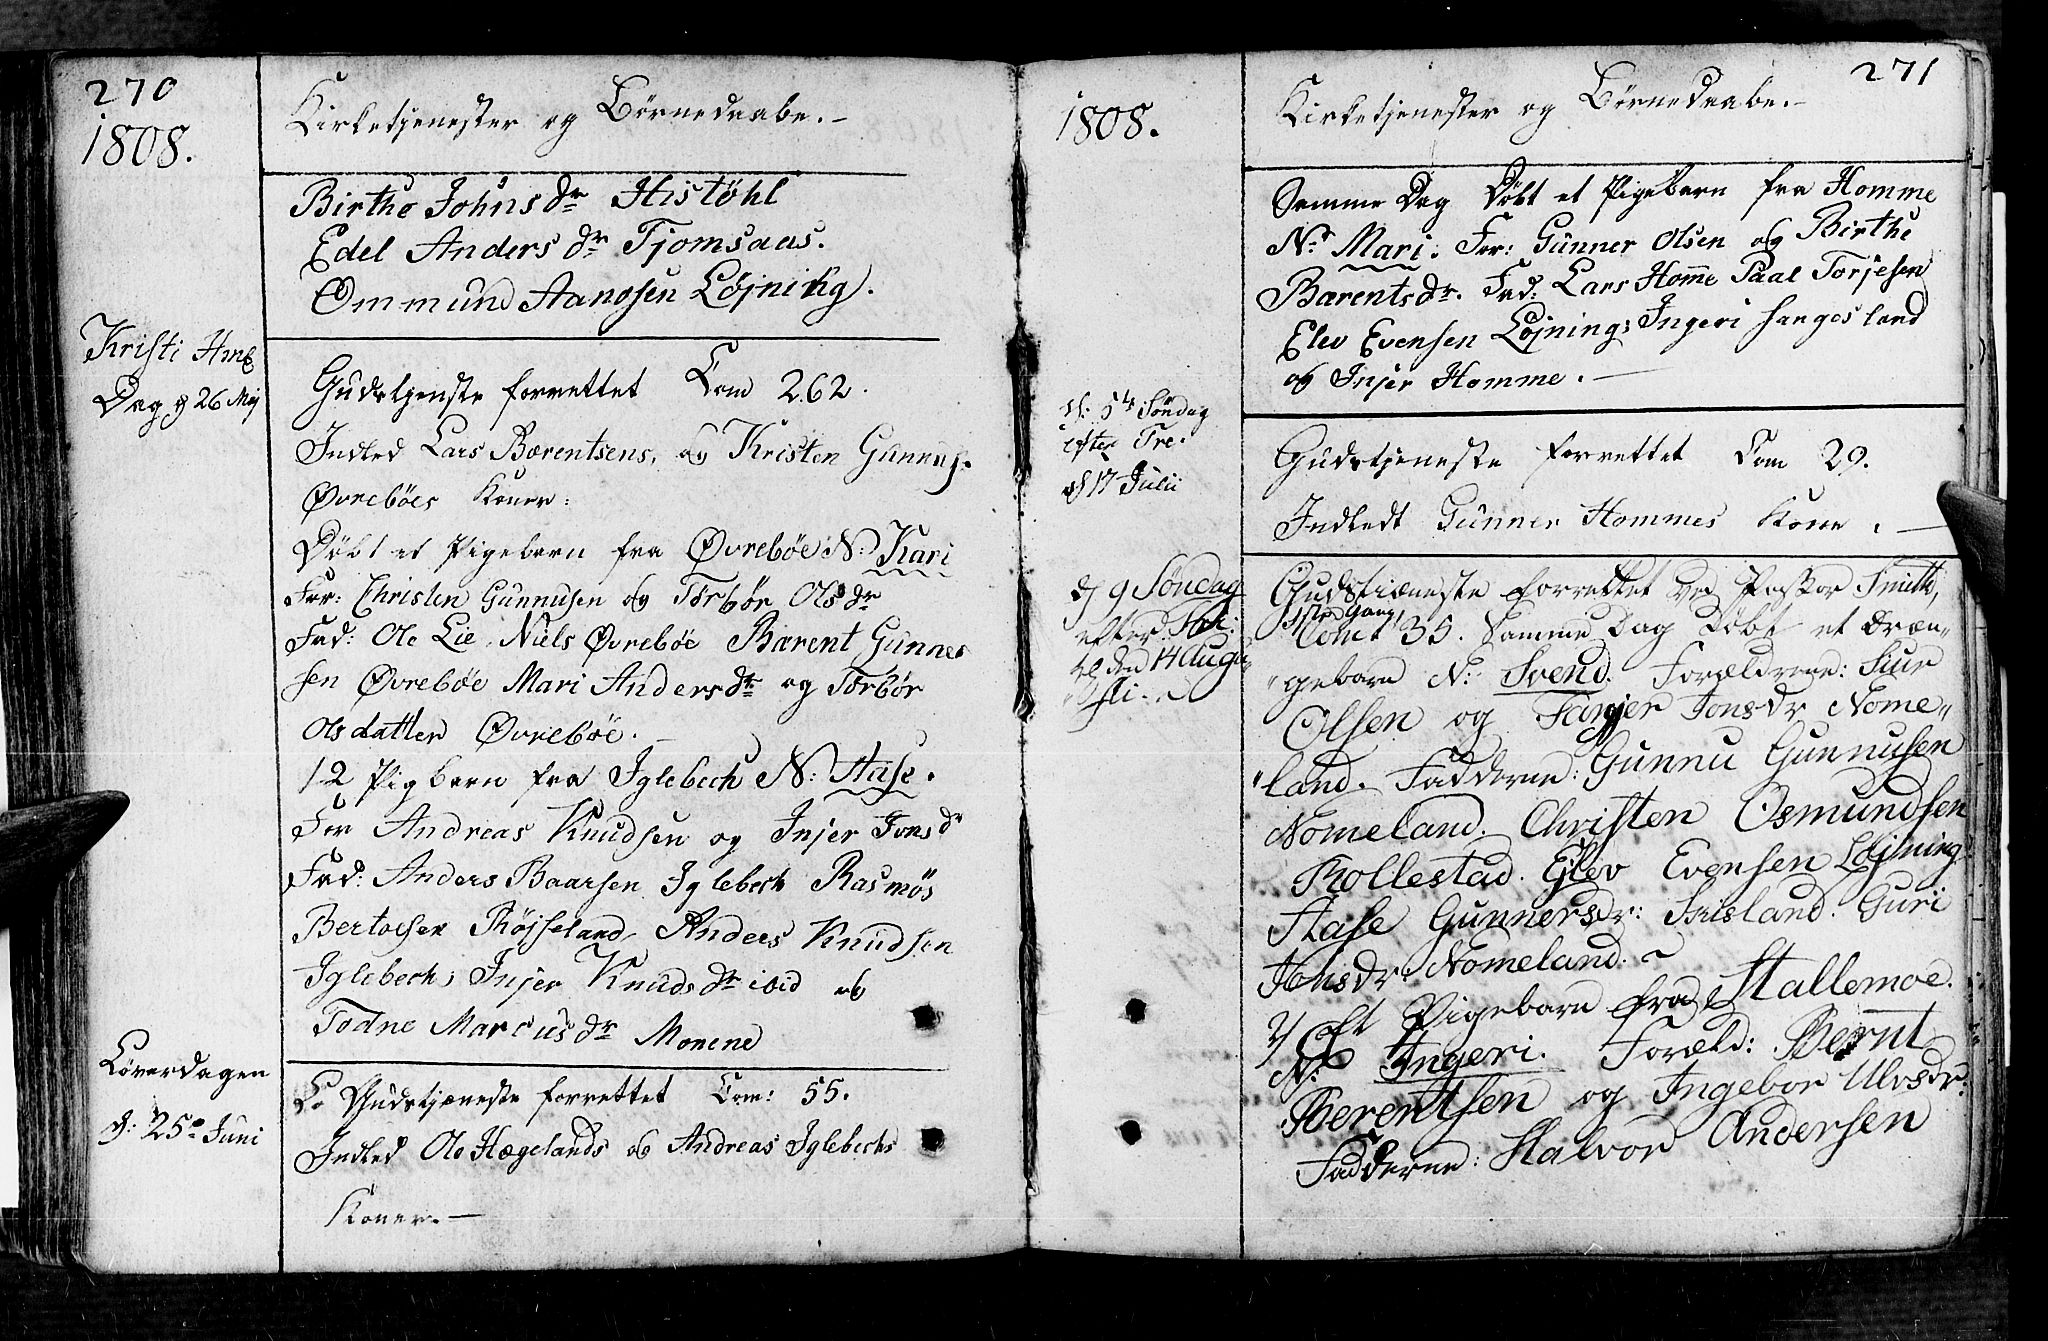 270
1808.
Kirketjenester og Börnedaabe.-
Birthe Johns dr Histöhl
Edel Anders dr Tjomsaas.
Ommund Aanosen Löjning.
Kristi Hmf
Dag d 26 Mij
Gudstjenste forrettet Com 262.
Indled Lars Bærentsens, og Kristen Gunnuf.
Øvreböes Koner:
Döbt et Pigebarn fra Øvreböe N: Kari
For: Christen Gunnusen og Torbör Ols dr
Fad: Ole Lie, Niels Øvreböe Bærent Gunne-
sen Øvreböe Mari Anders dr og Torbör
Olsdatter Øvreböe.-
/2 Pigbarn fra Iglebech N: Aase.
For Andreas Knudsen og Injer Jons dr
Fad: Anders Baarsen Iglebech Rasmös
Bertoesen Röjseland, Anders Knudsen
Iglebech, Injer Knuds dr ibid og
Todne Marcus dr Monene
Löverdagen
d: 25de Juni
Gudstjeneste forrettet Com: 55.
Indled Ole Hægelands og Andreas Iglebechs
Koner.-
271
1808.
Kirketjenester og Börnedaabe.-
Samme Dag Döbt et Pigebarn fra Homme
N: Mari. For: Gunner Olsen og Birthe
Bærents dr. Fad: Lars Home Paal Torjesen
Elev Evensen Löjning; Ingeri Hangesland
og Injer Homme.-
d: 5te Söndag
efter Tre.
d 17 Julii
Gudstjeneste forrettet Com 29.
Indledt Gunner Hommes Kone.-
d 9 Söndag
efter
den 14 Augu-
sti.
Gudstieneste forrettet ved Pastor Smith,
1ste Gang,
Com: 35. Samme Dag döbt et Dræn-
-gebarn N: Svend. Forældrene: Siur
Olsen og Tanjer Jonsdr Nome-
-land. Fadderne: Gunnu Gunnusen
Nomeland. Christen Osmundsen
Rollestad. Elev Evensen Löjning
Aase Gunnersdr: Frisland. Guri
Jonsdr: Nomeland.
2/ Et Pigebarn fra Stallemoe.
N: Ingeri. Foræld: Bernt
Berentsen og Ingebor Ulvsdr:
Fadderne: Halvor Andersen